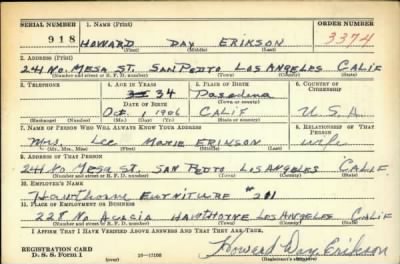 SERIAL NUMBER 1. NAME (Print) ORDER NUMBER
918 HOWARD DAY ERIKSON 3374
(First) (Middle) (Last)
2. ADDRESS (Print)
241 NO. MESA ST. SAN PEDRO LOS ANGELES CALIF
(Number and street or R. F. D. number) (Town) (County) (State)
3. TELEPHONE 4. AGE IN YEARS 5. PLACE OF BIRTH 6. COUNTRY OF CITIZENSHIP
34 Pasadena
DATE OF BIRTH (Town or county)
Oct. 1 1906 CALIF U.S.A.
(Exchange) (No.) (Mo.) (Day) (Yr.) (State or country)
7. NAME OF PERSON WHO WILL ALWAYS KNOW YOUR ADDRESS 8. RELATIONSHIP OF THAT PERSON
Mrs. Lee MARIE ERIKSON wife
(Mr., Mrs., Miss) (First) (Middle) (Last)
9. ADDRESS OF THAT PERSON
241 NO MESA ST. SAN PEDRO LOS ANGELES CALIF.
(Number and street or R. F. D. number) (Town) (County) (State)
10. EMPLOYER'S NAME
Hawthorne FURNITURE
11. PLACE OF EMPLOYMENT OR BUSINESS
228 NO ACACIA HAWTHORNE LOS ANGELES CALIF
(Number and street or R. F. D. number) (Town) (County) (State)
I AFFIRM THAT I HAVE VERIFIED ABOVE ANSWERS AND THAT THEY ARE TRUE.
REGISTRATION CARD
D. S. S. Form 1 16—17105 Howard Day Erikson
(Registrant's signature)